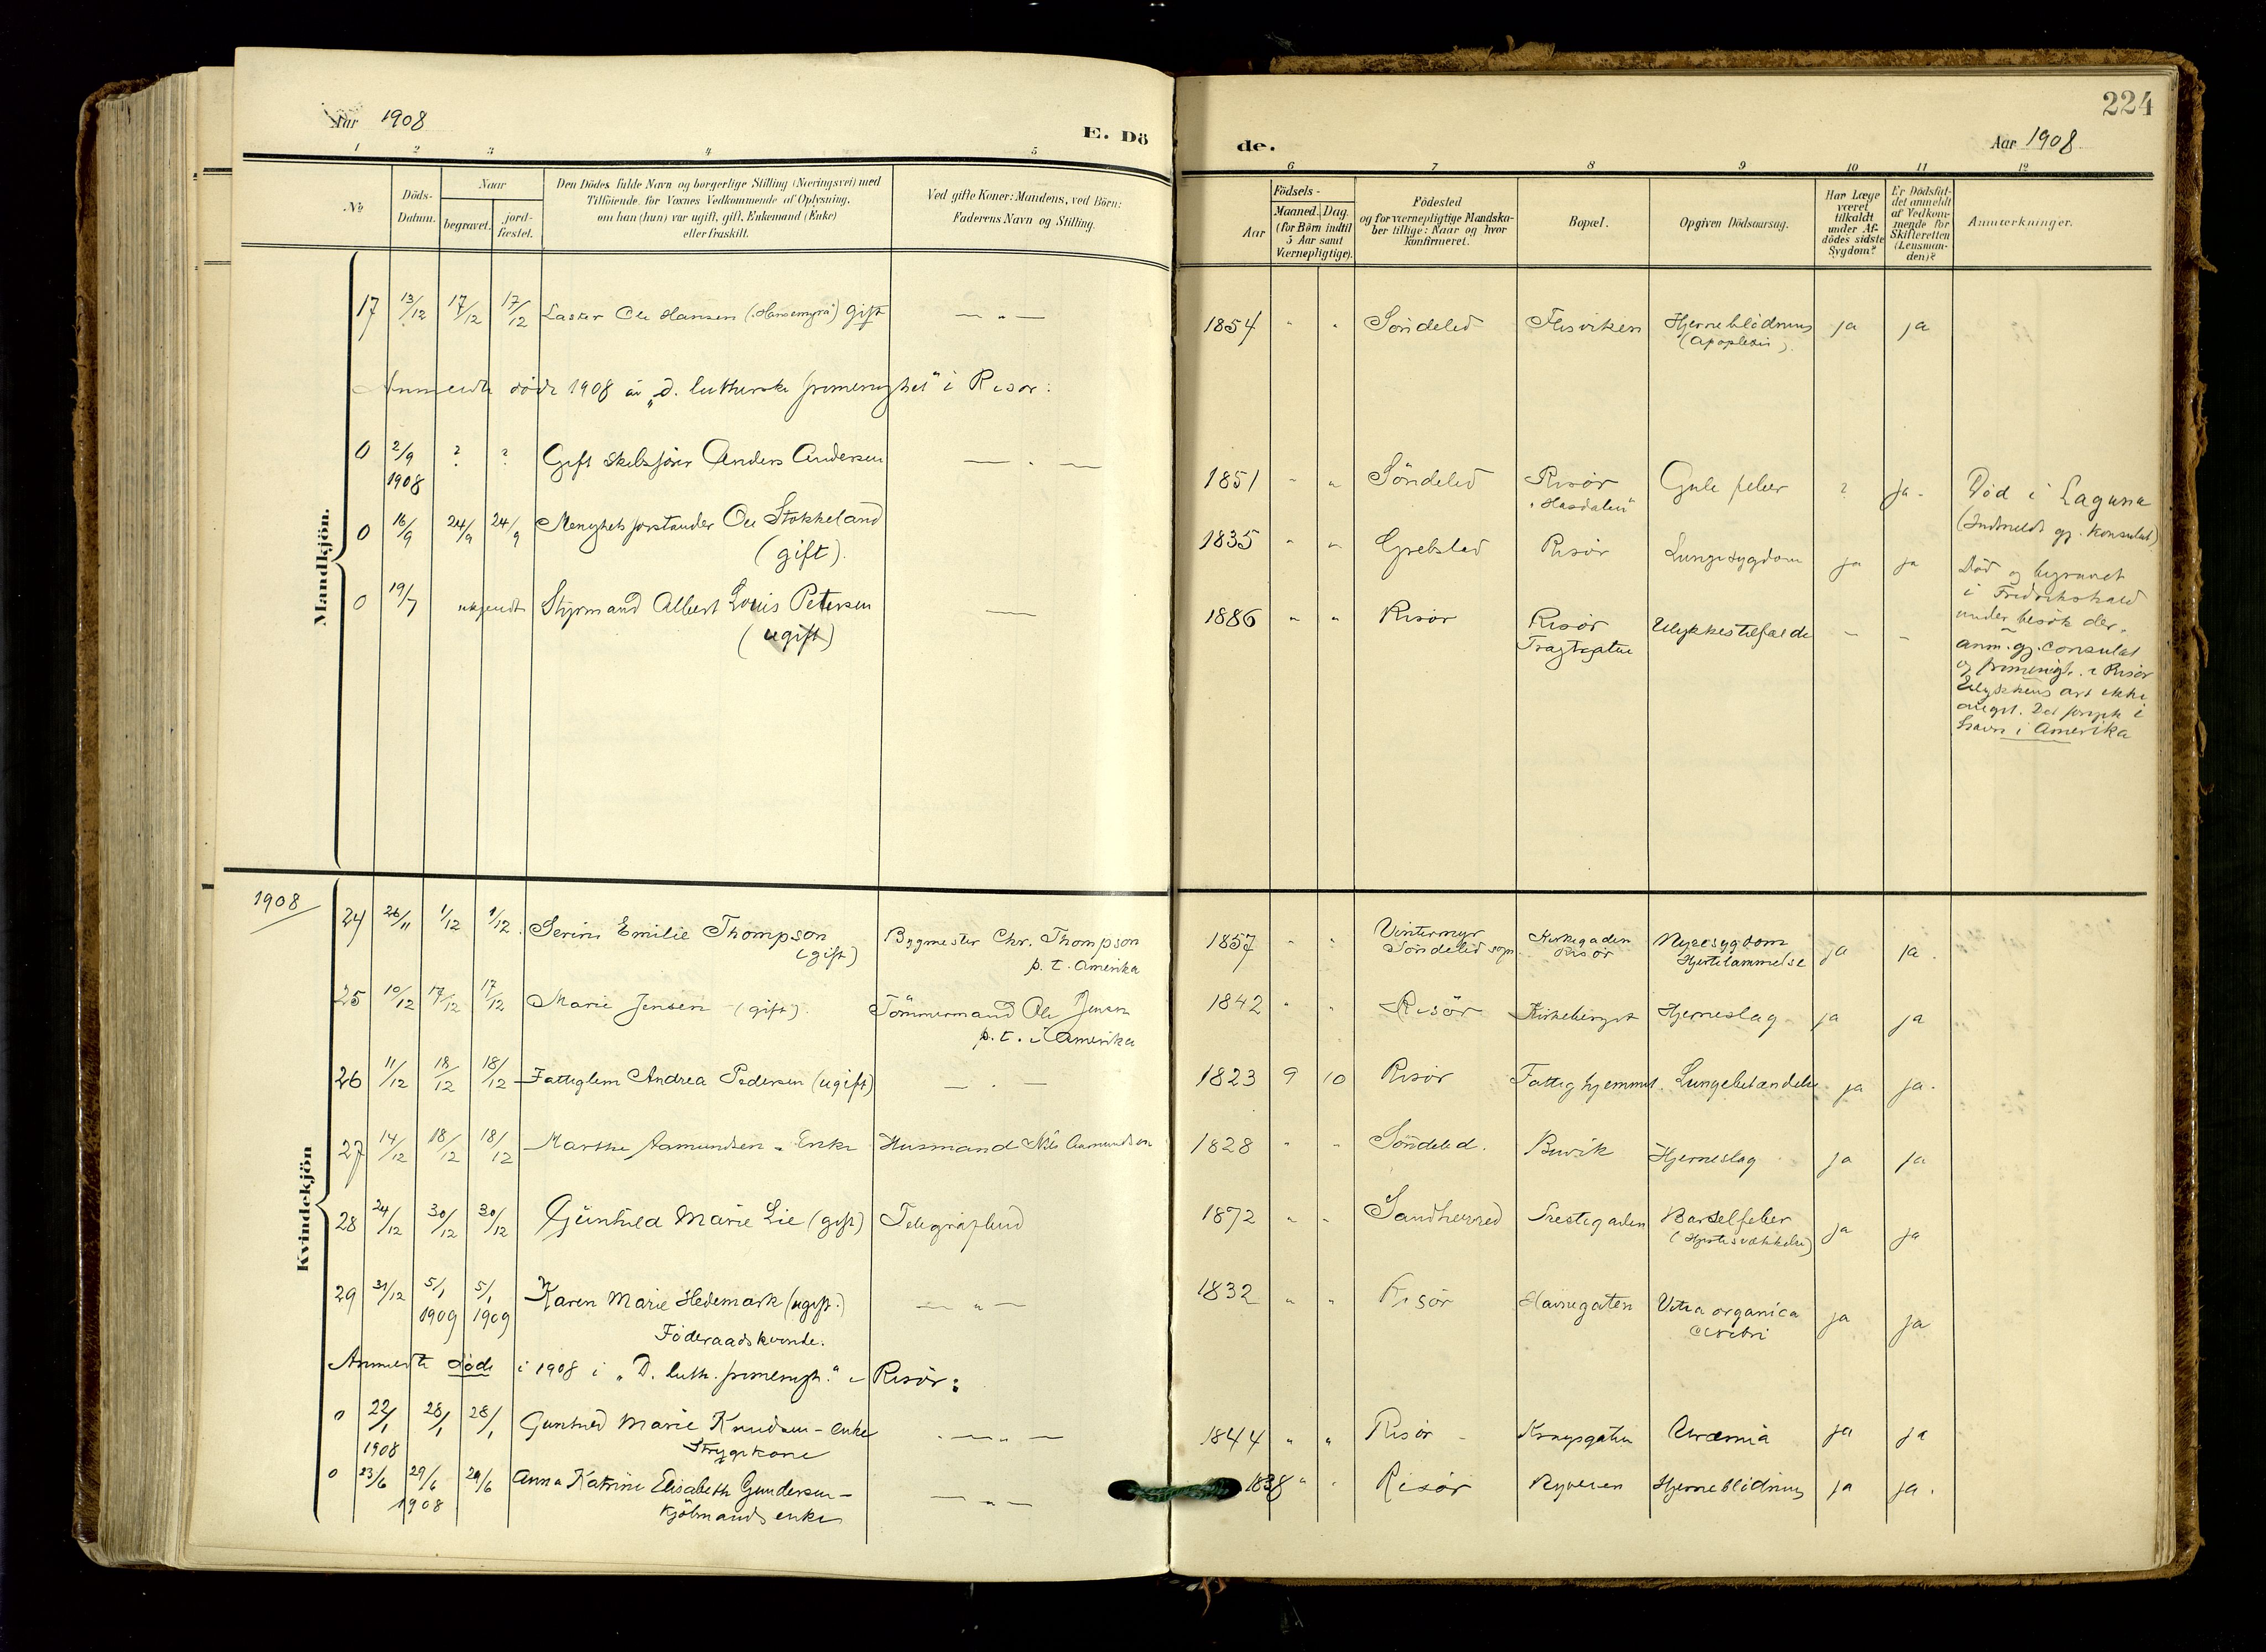 Aar 1908
E. Dö
de.
Aar 1908
224
1 2 3 4 5
6 7 8 9 10 11 12
No
Döds-
Datum.
Naar
begravet.
jord-
fæstet.
Den Dödes fulde Navn og borgerlige Stilling (Næringsvei) med
Tilföiende for Voxnes Vedkommende af Oplysning,
om han (hun) var ugift, gift, Enkemand (Enke)
eller fraskilt.
Ved gifte Koner: Mandens, ved Börn:
Faderens Navn og Stilling.
Födsels-
Aar
Maaned. Dag.
(for Börn indtil
5 Aar samt
Værnepligtige).
Födested
og for værnepligtige Mandska-
ber tillige: Naar og hvor
konfirmeret.
Bopæl.
Opgiven Dödsaarsag.
Har Læge
været
tilkaldt
under Af-
dödes sidste
Sygdom?
Er Dödsfal-
det anmeldt
af Vedkom-
mende for
Skifteretten
(Lensman-
den)?
Anmærkninger.
Mandkjön.
17 13/12 17/12 17/12 Laster Ole Hansen ("Hansemyra") gift — " — 1854 " " Söndeled Flisviken Hjerneblödning ja ja
(Apoplexi).
Anmeldte döde 1908 av "D. lutherske frimenighet" i Risør:
0 2/9 ? ? Gift skibsfører Anders Andersen — " — 1851 " " Söndeled Risør Gule feber ? ja. Död i Laguna
1908 "Hasdalen" (Indmeldt gj. Konsulat)
0 16/9 24/9 24/9 Menighetsforstander Ole Stokkeland 1835 " " Risør Lungesygdom ja ja Död og begravet
(gift). i Fredrikshald
under besøk der.
0 19/7 ukjendt Styrmand Albert Louis Petersen — 1886 " " Risør Risør Ulykkestilfælde — — anm. gj. Consulat
(ugift) og frimenigh. i Risør
Ulykkens art ikke
angit. Det foregik i
havn i Amerika
1908
Kvindekjön
24 26/11 1/12 1/12. Serine Emilie Thompson Bygmester Chr. Thompson 1857 " " Vintermyr Kirkegaden Nyresygdom ja ja.
(gift) p. t. Amerika Söndeled sogn Risør Hjertelammelse
25 10/12 17/12 17/12 Marie Jensen (gift). Tömmermand Ole Jensen 1842 " " Risør Kirkeberget Hjerneslag ja ja
p. t. i Amerika
26 11/12 18/12 18/12 Fattiglem Andrea Pedersen (ugift) — " — 1823 9 10 Risør Fattighjemmet. Lungebetændelse ja ja.
27 14/12 18/12 18/12 Marthe Aamundsen - Enke Husmand Nils Aamundsen 1828 " " Söndeled. Buvik Hjerneslag ja ja
28 24/12 30/12 30/12 Gunhild Marie Lie (gift) Telegrafbud 1872 " " Sandherred Prestegaden Barselfeber ja ja
(Hjertesvækkelse)
29 31/12 5/1 5/1 Karen Marie Hedemark (ugift.) — " — 1832 " " Risør Havnegaten Vitia organica ja ja
1909 1909 Föderaadskvinde. cerebri
Anmeldte döde i 1908 i "D. luth. frimenigh." i Risør:
0 22/1 28/1 28/1 Gunhild Marie Knudsen - enke — " — 1844 " " Risør Kragsgaten Uræmia ja ja
1908 Strygekone
0 23/6 29/6 29/6 Anna Katrine Elisabeth Gundersen - — " — 1838 " " Risør Hjerneblödning ja ja.
1908 Kjöbmands enke